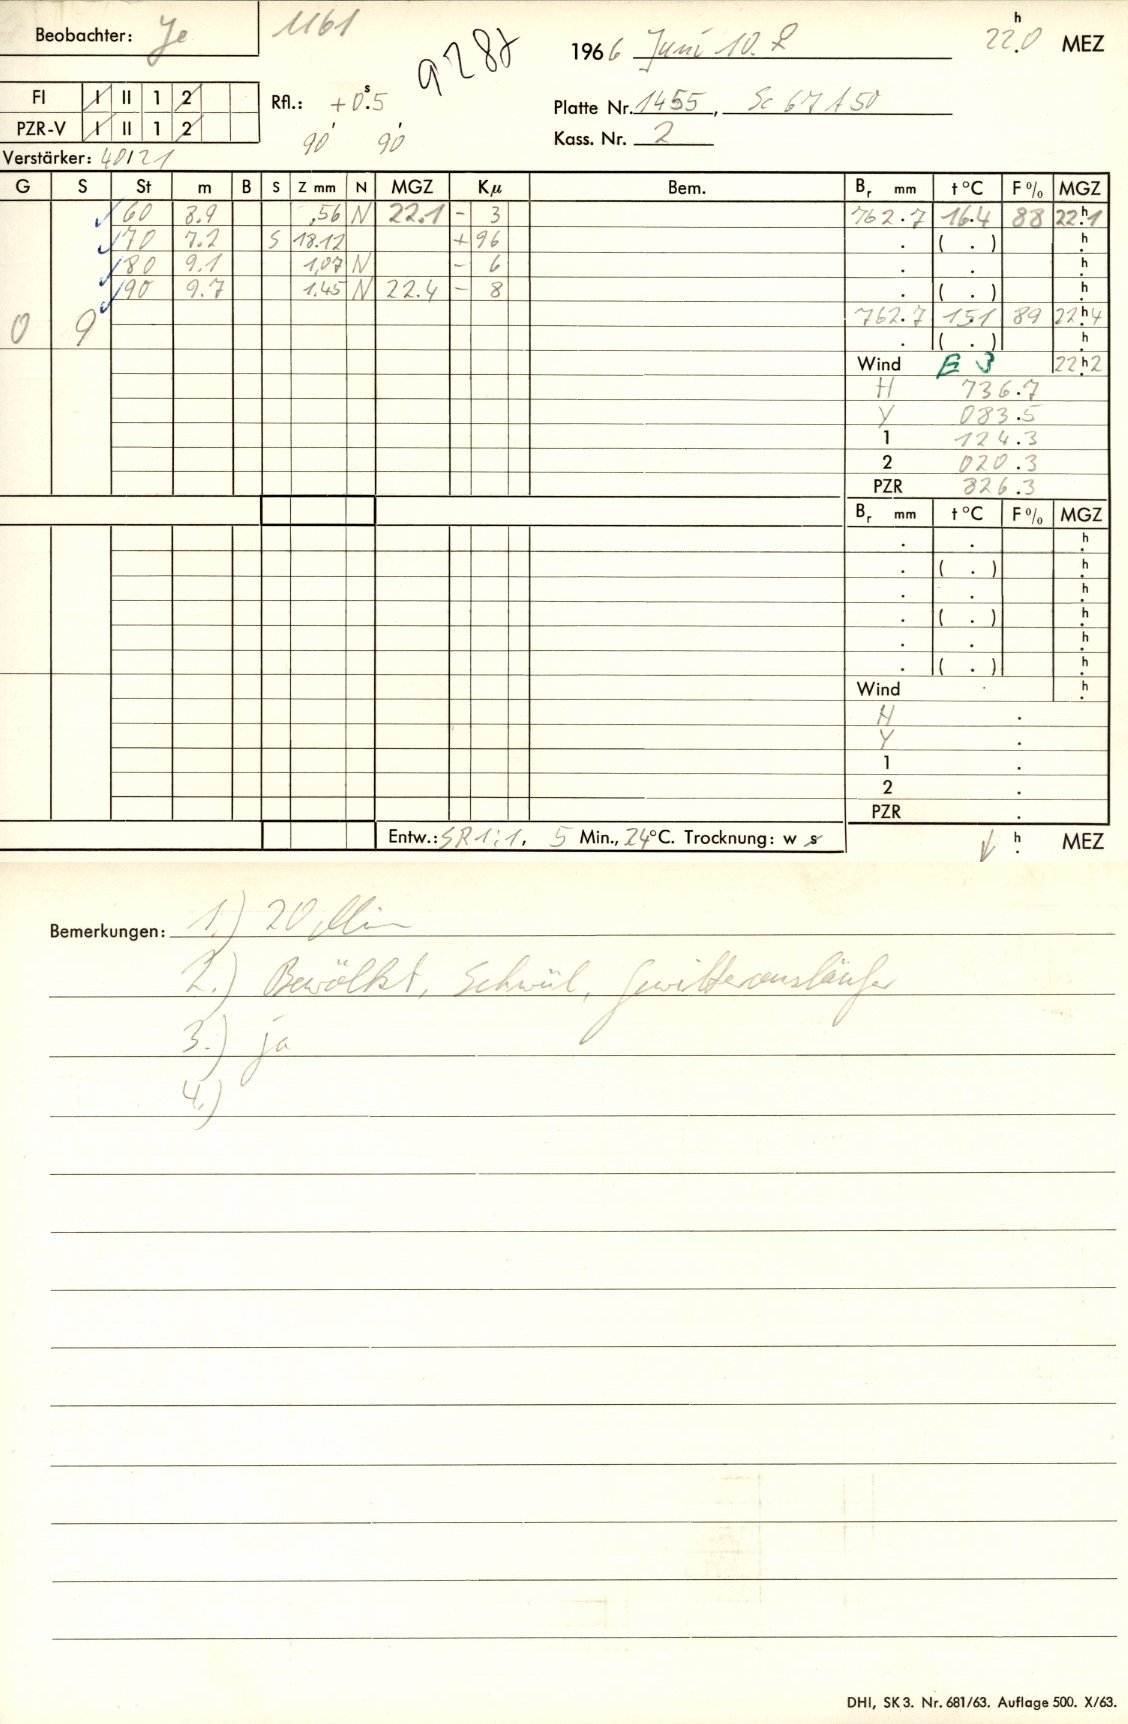 Beobachter: Je 1161 9287 1966 Juni 10. 22h.0 MEZ
FI I II 1 2 Rfl.: +0s.5 Platte Nr. 1455, Sc 67 A 50
PZR-V I II 1 2 90' 90' Kass. Nr. 2
Verstärker: 40/21
G S St m B S Z mm N MGZ Kμ Bem. Br mm t °C F % MGZ
60 8.9 ,56 N 22.1 - 3 762.7 16.4 88 22h.1
70 7.2 S 18.12 + 96 . ( . ) h.
80 9.1 1,07 N - 6 . . h.
90 9.7 1.45 N 22.4 - 8 . ( . ) h.
0 9 762.7 15.1 89 22h.4
. ( . ) h.
Wind E 3 22h.2
H 736.7
Y 083.5
1 124.3
2 020.3
PZR 826.3
Br mm t °C F % MGZ
. . h.
. ( . ) h.
. . h.
. ( . ) h.
. . h.
. ( . ) h.
Wind . h.
H .
Y .
1 .
2 .
PZR .
Entw.: SR 1:1, 5 Min., 24 °C. Trocknung: w s h. MEZ
Bemerkungen: 1.) 20 Min
2.) Bewölkt, Schwül, Gewitterausläufer
3.) ja
4.)
DHI, SK 3. Nr. 681/63. Auflage 500. X/63.